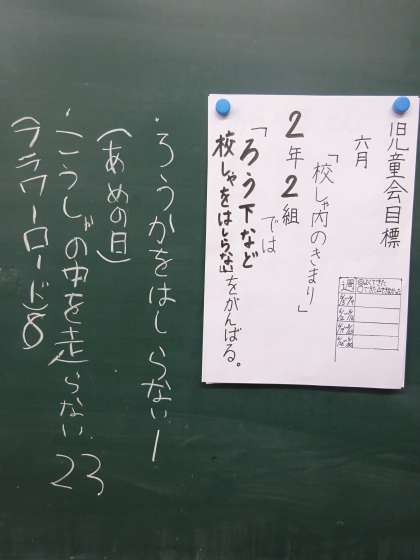 児童会目標
六月
「校しゃ内のきまり」
2年2組
では
「ろう下など
校しゃをはしらない」をがんばる。
週
・ろうかをはしらないー
(あめの日)
・こうしゃの中を走らない 23
(フラワーロード)8